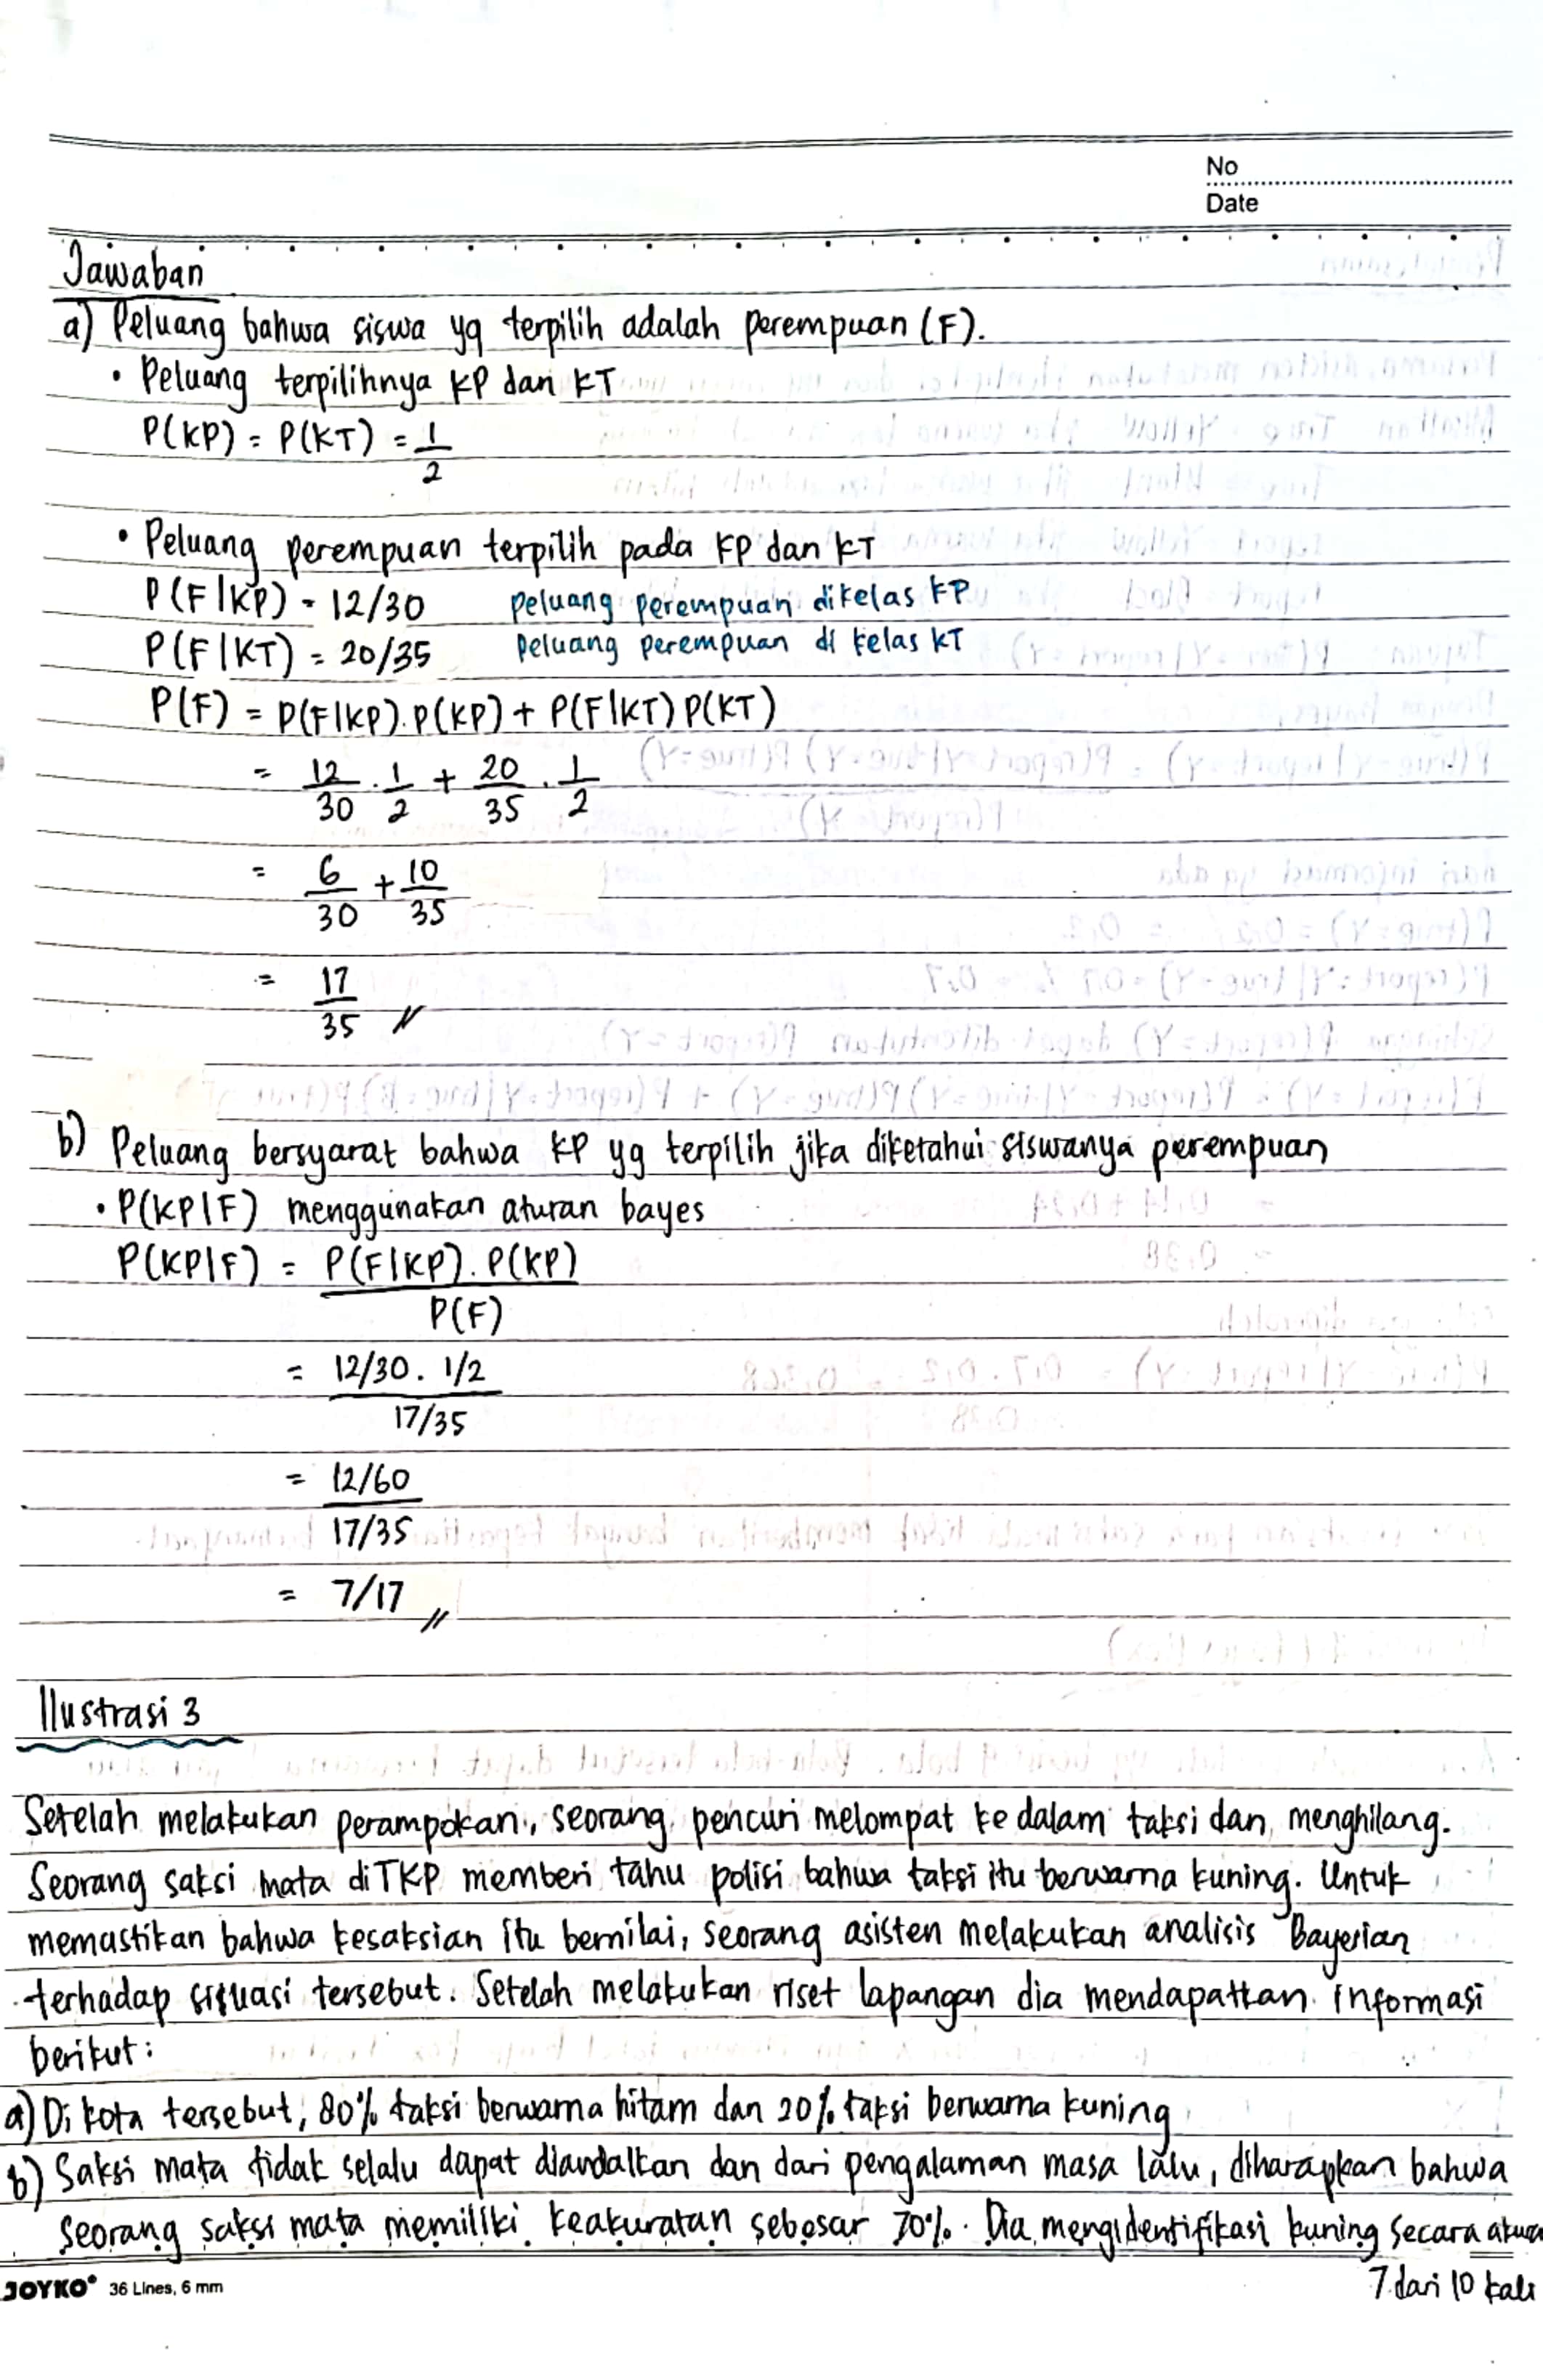 No
Date
Jawaban
a) Peluang bahwa siswa yg terpilih adalah perempuan (F).
• Peluang terpilihnya KP dan KT
P(KP) = P(KT) = 1/2
• Peluang perempuan terpilih pada KP dan KT
P(F|KP) = 12/30 peluang perempuan dikelas KP
P(F|KT) = 20/35 peluang perempuan di kelas KT
P(F) = P(F|KP).P(KP) + P(F|KT) P(KT)
= 12/30 . 1/2 + 20/35 . 1/2
= 6/30 + 10/35
= 17/35 //
b) Peluang bersyarat bahwa KP yg terpilih jika diketahui siswanya perempuan
• P(KP|F) menggunakan aturan bayes
P(KP|F) = P(F|KP). P(KP)
P(F)
= 12/30 . 1/2
17/35
= 12/60
17/35
= 7/17 //
Ilustrasi 3
Setelah melakukan perampokan, seorang pencuri melompat ke dalam taksi dan menghilang.
Seorang saksi mata di TKP memberi tahu polisi bahwa taksi itu berwarna kuning. Untuk
memastikan bahwa kesaksian itu bernilai, seorang asisten melakukan analisis Bayesian
terhadap situasi tersebut. Setelah melakukan riset lapangan dia mendapatkan informasi
berikut:
a) Di kota tersebut, 80% taksi berwarna hitam dan 20% taksi berwarna kuning
b) Saksi mata tidak selalu dapat diandalkan dan dari pengalaman masa lalu, diharapkan bahwa
seorang saksi mata memiliki keakuratan sebesar 70%. Dia mengidentifikasi kuning secara
7 dari 10 kali
JOYKO 36 Lines, 6 mm